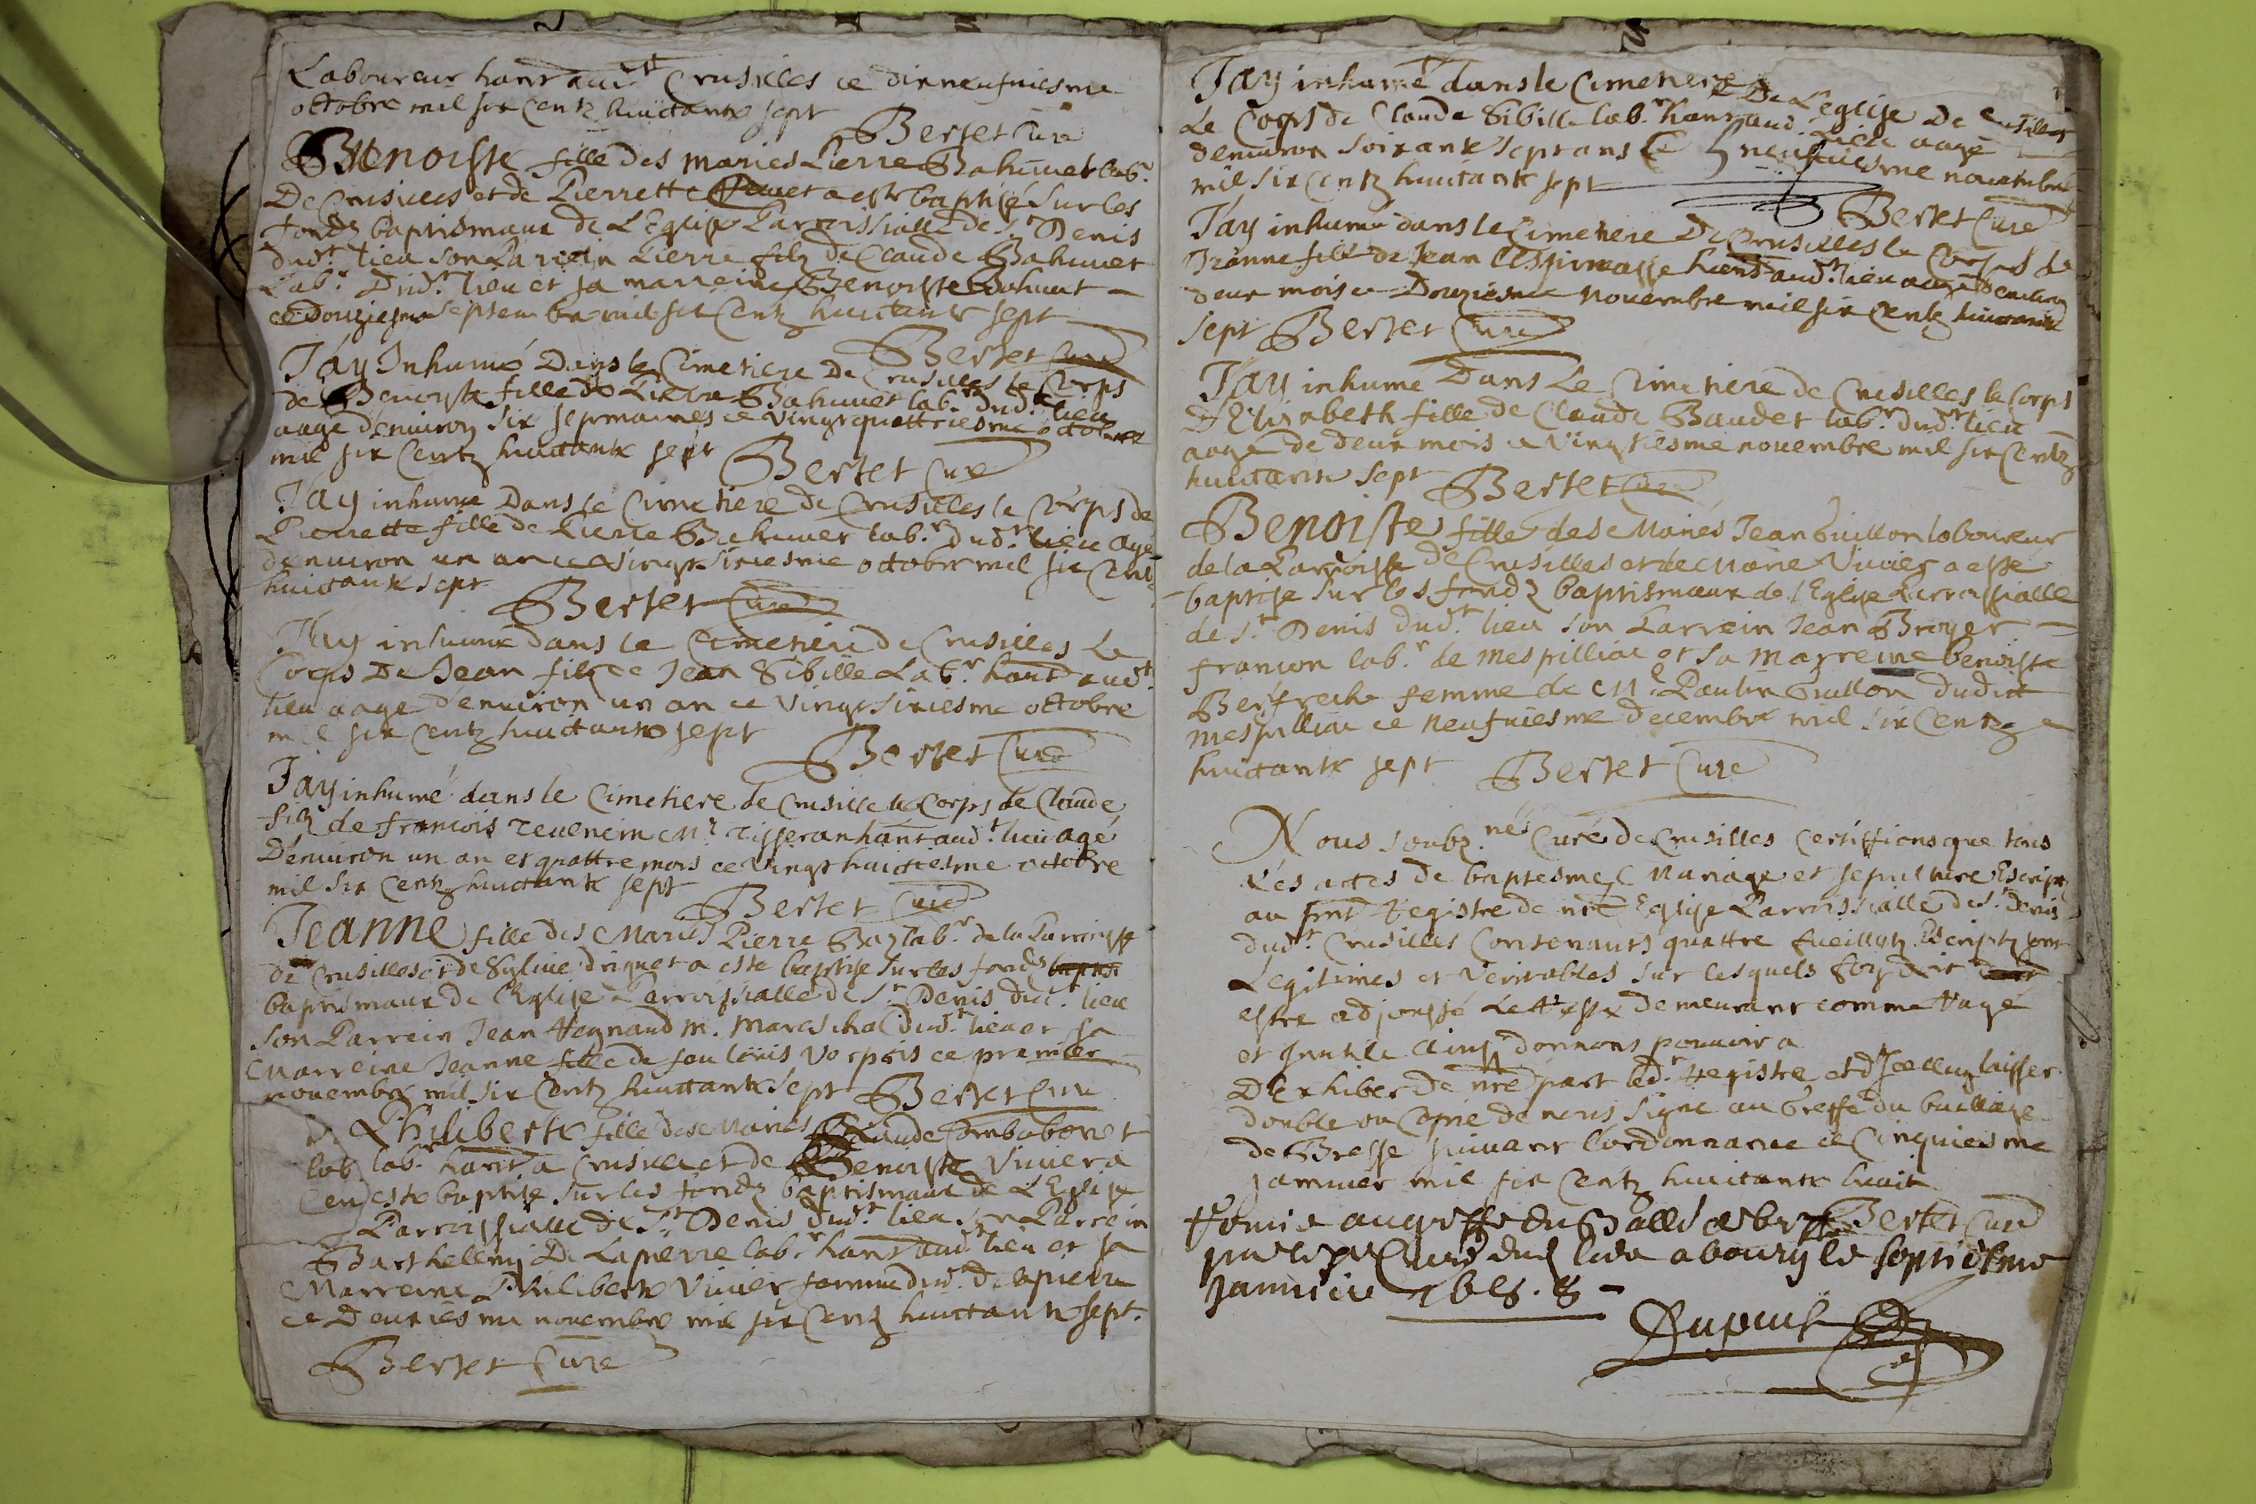 Laboureur hant audt Crusilles ce dixneufuiesme
octobre mil six Centz huictante sept
Bertet Curé
Benoiste fille des mariés Pierre Bahuuet labr.
De Crusilles et de Pierrette a este baptisé sur les
fondz baptismaux de L'Eglise Parroissialle de St Denis
dudt. lieu son Parrein Pierre filz de Claude Bahuuet
Labr. Dudt. lieu et sa marreine Benoiste Bahuuet
ce Douziesme septembre mil six Centz huictante sept
Bertet Curé
Jay Inhumé Dans le Cimetiere De Crusilles le Corps
de Benoiste fille de Pierre Bahuuet labr. dudt. lieu
aagé d'enuiron six sepmaines ce vingtquattriesme octobre
mil six Centz huictante sept Bertet Curé
Jay inhumé Dans le Cimetiere de Crusilles le Corps de
Pierrette fille de Pierre Bahuuet labr. dudt. lieu agé
d'enuiron un an ce vingt sixiesme octobre mil six Centz
huictante sept
Bertet Curé
Jay inhumé dans le Cimetiere de Crusilles Le
Corps De Jean filz de Jean Sibille Labr. hant audt.
lieu aagé d'enuiron un an ce vingt sixiesme octobre
mil six Centz huictante sept
Bertet Curé
Jay inhumé dans le Cimetiere de Crusille le Corps de Claude
filz de francois Teuenein Mr. Tisseran hant audt. lieu agé
D'enuiron un an et quattre mois ce vingt huictiesme octobre
mil six Centz huictante sept
Bertet Curé
Jeanne fille des Mariés Pierre labr. de la Parroisse
de Crusilles et de Syluie a esté baptisé sur les fondz
baptismaux de l'Eglise Parroissialle de St. Denis dudt. lieu
son Parrein Jean Regnaud m. Mareschal dudt. lieu et sa
Marreine Jeanne fille de feu louis ce premier
nouembre mil six Centz huictante sept Bertet Curé
Philiberte fille des Mariés Claude
labr. hant a Crusilles et de Benoiste Viuier a
esté baptisé sur les fondz baptismaux de L'Eglise
Parroissialle de St. Denis dudt. lieu son Parrein
Barthellemy De Lapierre labr. hant audt. lieu et sa
Marreine Philiberte Viuier femme dudt. de lapierre
ce Deuxiesme nouembre mil six Centz huictante sept.
Bertet Curé
Jay inhumé dans le Cimetiere De L'eglise De Crusilles
Le Corps de Claude Sibille labr. hant audt. lieu aagé
d'enuiron soixante sept ans ce neufuiesme nouembre
mil six Centz huictante sept
Bertet Curé
Jay inhumé dans le Cimetiere De Crusilles le Corps de
Jeanne fille de Jean hant audt. lieu aagé d'enuiron
deux mois ce Douziesme nouembre mil six Centz huictante
sept Bertet Curé
Jay inhumé Dans Le Cimetiere de Crusilles le Corps
D'Elizabeth fille de Claude Baudet labr. dudt. lieu
aagé de deux mois ce vingtiesme nouembre mil six Centz
huictante sept Bertet Curé
Benoiste fille des Mariés Jean Guillon laboureur
de la Parroisse de Crusilles et de Marie Viuier a esté
baptisé sur les fondz baptismaux de l'Eglise Parroissialle
de St. Denis dudt. lieu son Parrein Jean Broyer
francon labr. de mespilliac et sa marreine benoiste
femme de Mr. Paulin Guillon dudict
mespilliac ce neufuiesme decembre mil six Centz
huictante sept Bertet Curé
Nous soubz.nés Curé de Crusilles Certiffions que tous
Les actes de baptesme, Mariage et sepulture Escriptz
au pnt Registre de nre Eglise Parroissialle de St. denis
dudt. Crusilles Contenants quattre fueilletz Escriptz sont
Legitimes et Veritables sur lesquels foy doit
estre adjousté Le demeurant comme
et Inutile donnons pouuoir a
D'exhiber de nre part ledt. Registre et d'Icelluy laisser
double ou Copie de nous signé au Greffe du bailliage
de Bresse suiuant l'ordonnance ce Cinquiesme
januier mil six Centz huictante huict
Bertet Curé
Remis au greffe du Balliage de bresse
par led. sr Curé dud. lieu a bourg le septiesme
januier 1688.
Dupuis